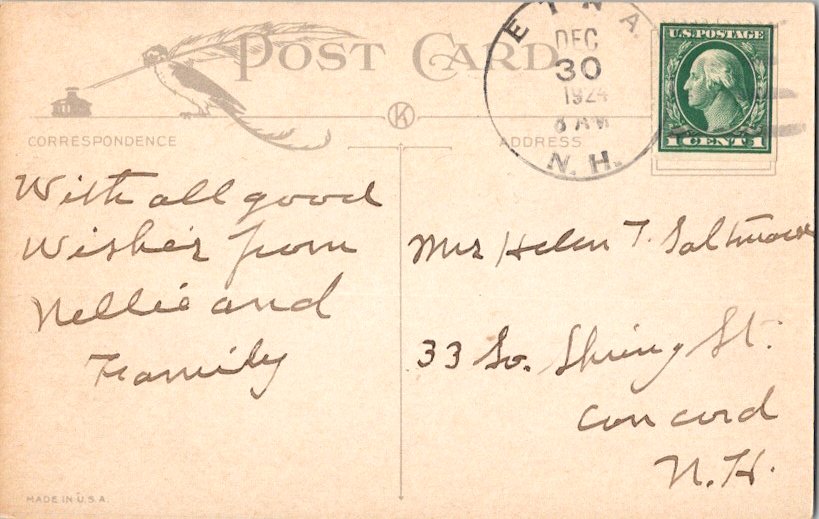 POST CARD
ETNA
DEC
30
1924
8 AM
N.H.
U.S. POSTAGE
1 CENT 1
K
CORRESPONDENCE
ADDRESS
With all good
Wishes from
Nellie and
Family
Mrs Helen T.
33 So. Spring St.
Concord
N.H.
MADE IN U.S.A.